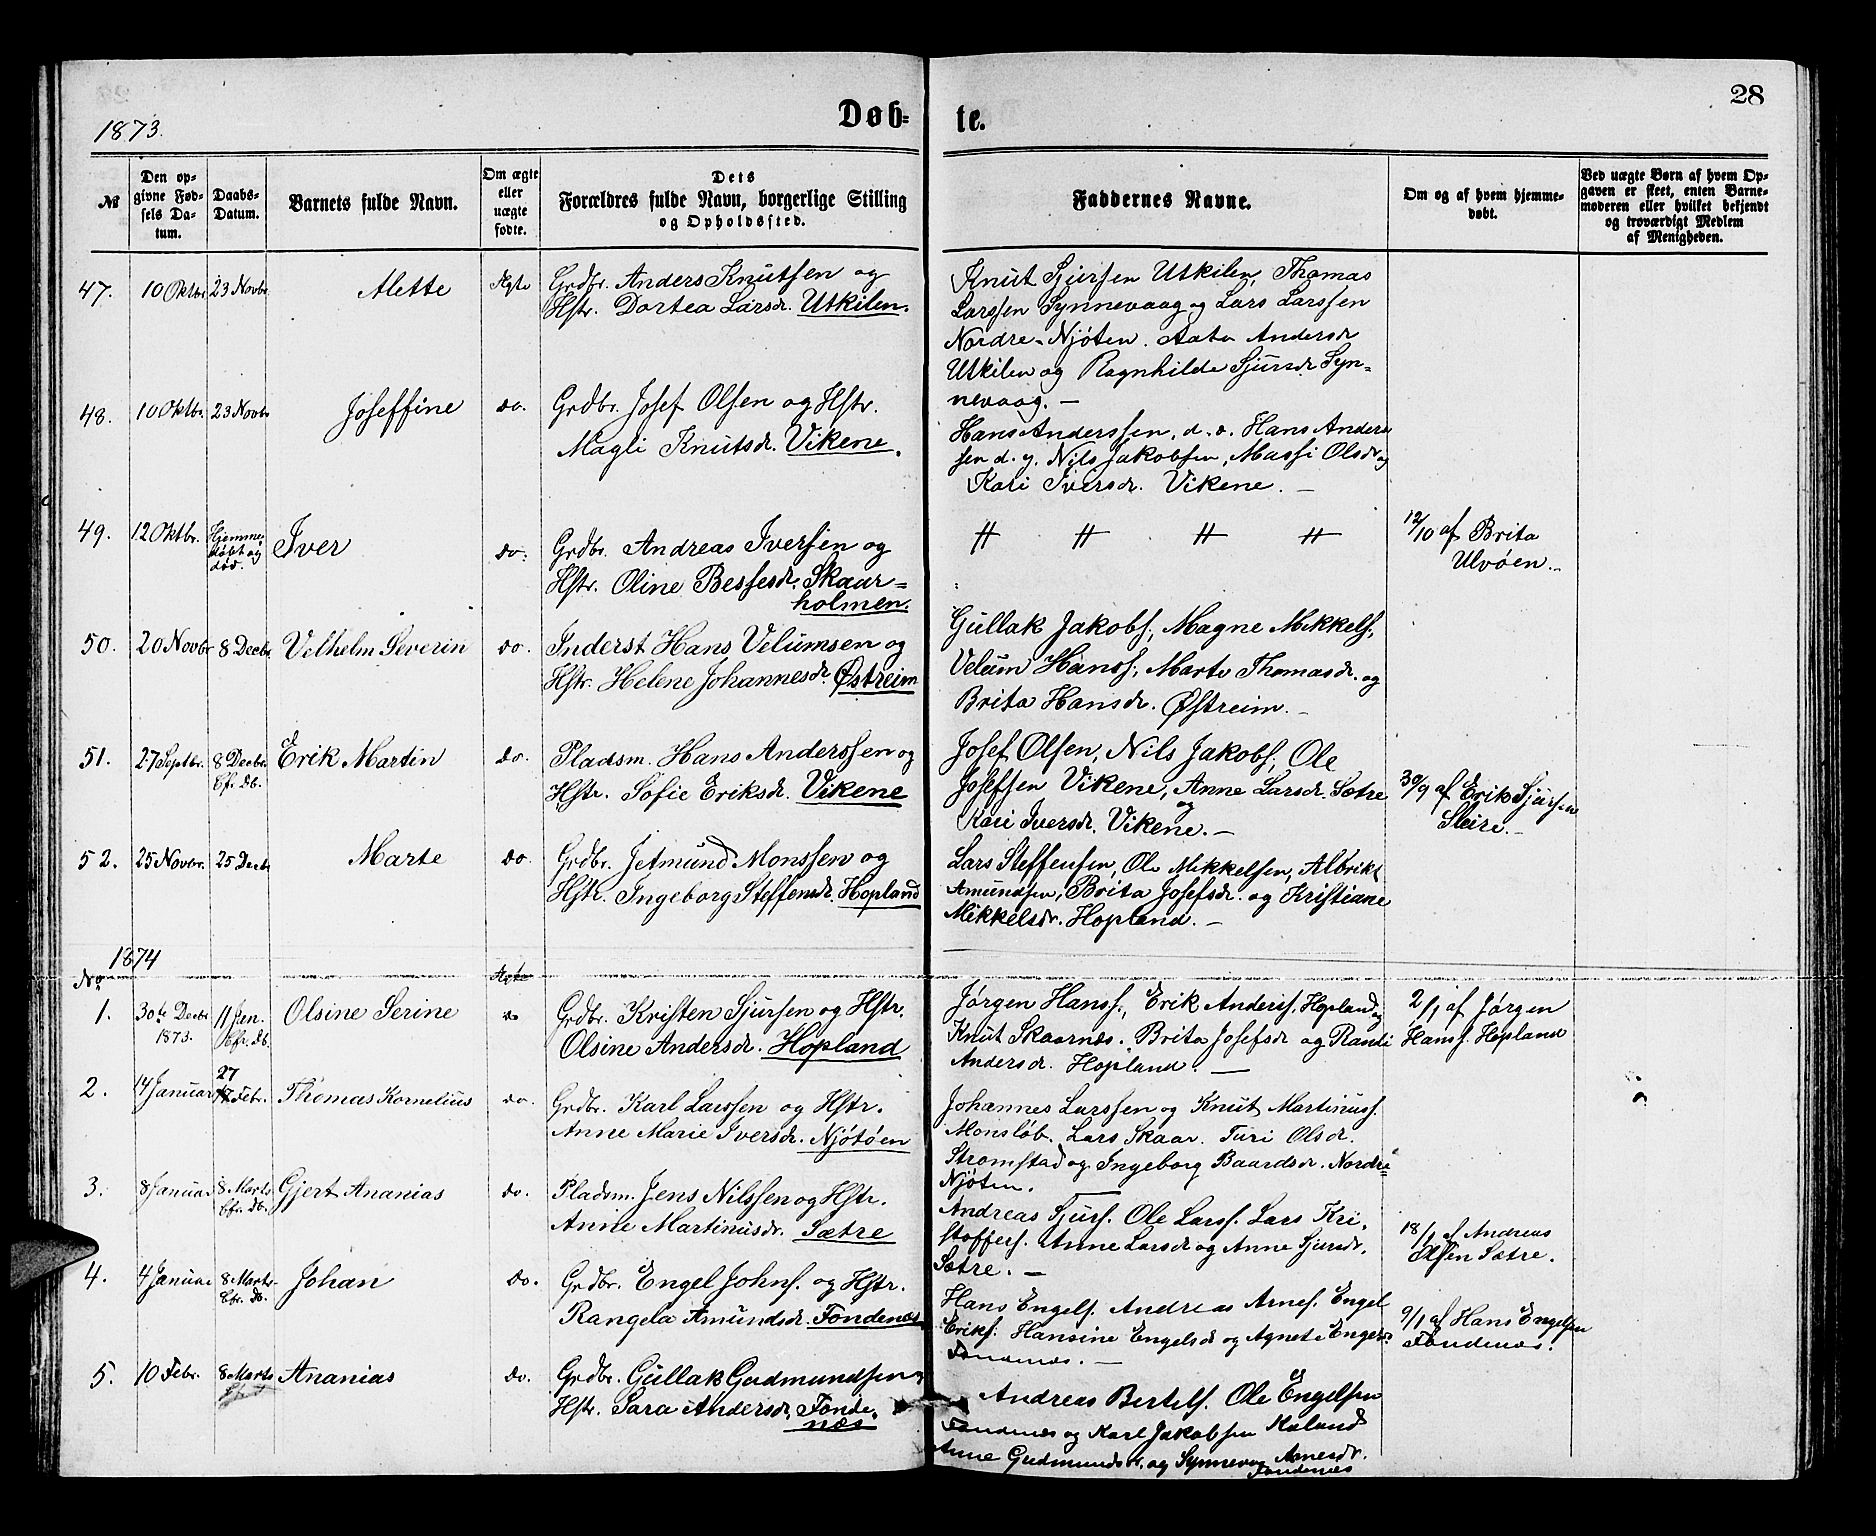 28
1873.
Døb-
te.
№
Den op-
givne Fød-
sels Da-
tum.
Daabs-
Datum.
Barnets fulde Navn.
Om ægte
eller
uægte
fødte.
Dets
Forældres fulde Navn, borgerlige Stilling
og Opholdssted.
Faddernes Navne.
Om og af hvem hjemme-
døbt.
Ved uægte Børn af hvem Op-
gaven er skeet, enten Barne-
moderen eller hvilket bekjendt
og troværdigt Medlem
af Menigheden.
47. 10 Oktbr. 23 Novbr. Alette Ægte Grdbr. Anders Knutsen og
Hstr. Dortea Larsdr. Utkilen.
Knut Sjursen Utkilen, Thomas
Larssen Synnevaag og Lars Larssen
Nordre-Njøten. Aata Andersdr
Utkilen og Ragnhilde Sjursdr Syn-
nevaag. —
48. 10 Oktbr. 23 Novbr Joseffine do. Grdbr. Josef Olsen og Hstr.
Magli Knutsdr. Vikene.
Hans Anderssen, d. æ. Hans Anders
sen d. y. Nils Jakobsen, Massi Olsdr og
Kari Iversdr. Vikene. —
49. 12 Oktbr. Hjemme-
døbt og
død.
Iver do. Grdbr. Andreas Iversen og
Hstr. Oline Bessesdr. Skaar-
holmen.
〃 〃 〃 〃
12/10 af Brita
Ulvøen.
50. 20 Novbr 8 Decbr. Velhelm Severin do. Inderst Hans Velumsen og
Hstr. Helene Johannesdr. Østreim
Gullak Jakobs., Magne Mikkels.,
Velum Hanss., Marte Thomasdr. og
Brita Hansdr. Østreim. —
51. 27 Septbr. 8 Decbr.
Bfr. Db.
Erik Martin do. Pladsm. Hans Anderssen og
Hstr. Sofie Eriksdr. Vikene
Josef Olsen, Nils Jakobs., Ole
Josefsen Vikene, Anne Larsdr. Sætre
og
Kari Iversdr. Vikene. —
30/9 af Erik Sjursen
Sleire. —
52. 25 Novbr. 25 Decbr Marte do. Grdbr. Jetmund Monssen og
Hstr. Ingeborg Steffensdr. Hopland
Lars Steffensen, Ole Mikkelsen, Albrikt
Amundsen, Brita Josefsdr. og Kristiane
Mikkelsdr. Hopland. —
1874
No Ægte
1. 30te Decbr
1873.
11 Jan.
Bfr. Db.
Olsine Serine do Grdbr. Kristen Sjursen og Hstr.
Olsine Andersdr. Hopland
Jørgen Hanss., Erik Anderss. Hopland og
Knut Skaarnes. Brita Josefsdr og Randi
Andersdr. Hopland. —
2/1 af Jørgen
Hanss. Hopland
2. 14 Januar 27
Febr. Thomas Kornelius do. Grdbr. Karl Larssen og Hstr.
Anne Marie Iversdr. Njøtøen
Johannes Larssen og Knut Martinuss.
Monsløb. Lars Skaar. Turi Olsdr.
Strømstad og Ingeborg Baardsdr. Nordre
Njøten.
3. 8 Januar 8 Marts
Bfr. Db.
Gjert Ananias do. Pladsm. Jens Nilssen og Hstr.
Anne Martinusdr. Sætre
Andreas Sjurs. Ole Larss. Lars Kri-
stoffers. Anne Larsdr og Anne Sjursdr.
Sætre. —
18/1 af Andreas
Olsen Sætre.
4. 4 Januar 8 Marts
Bfr. Db.
Johan do. Grdbr. Engel Johns. og Hstr.
Rangela Amundsdr. Fondenæs
Hans Engels. Andreas Arnes. Engel
Eriks. Hansine Engelsdr og Agnete Engelsdr
Fondenæs. —
9/1 af Hans Engelsen
Fondenæs.
5. 10 Febr. 8 Marts Ananias do. Grdbr. Gullak Gudmundsen og
Hstr. Sara Andersdr, Fonde-
næs
Andreas Bertels. Ole Engelsen
Fondenæs og Karl Jakobsen Høland
Anne Gudmundsdr. og Synneva Arnesdr.
Fondenæs